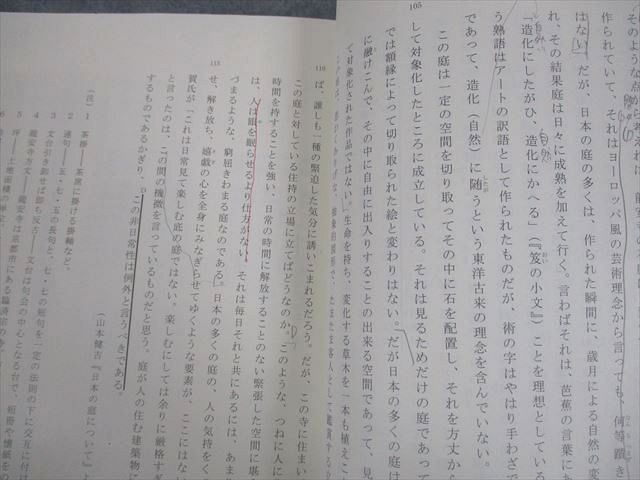 105
そのような点
作られていて、それはヨーロッパ風の芸術理念から言っても、何等躓き
はない。だが、日本の庭の多くは、作られた瞬間に、歳月による自然の変
れ、その結果庭は日々に成熟を加えて行く。言わばそれは、芭蕉の言葉にあ
「造化にしたがひ、造化にかへる」（『笈の小文』）ことを理想としている
う熟語はアートの訳語として作られたものだが、術の字はやはり手わざで
であって、造化（自然）に随うという東洋古来の理念を含んでいない。
この庭は一定の空間を切り取ってその中に石を配置し、それを方丈から
して対象化したところに成立している。それは見るためだけの庭であって
では額縁によって切り取られた絵と変わりはない。だが日本の多くの庭は
に融けこんで、その中に自由に出入りすることの出来る空間であって、見
て対象化された作品ではない。生命を持ち、変化する草木を一本も植えこ
110
ば、誰しも一種の緊迫した気分に誘いこまれるだろう。だが、この寺に住まい
この庭と対している住持の立場に立てばどうなのか。このような、つねに人に
時間を持することを強い、日常の時間に解放することのない緊張した空間に堪
は、人は眼を眠らせるより仕方がない。それは毎日それと共にあるには、あまり
づまるような、窮屈きわまる庭なのである。日本の多くの庭の、人の気持をく
115
せ、解き放ち、嬉戯の心を全身にみなぎらせてゆくような要素が、ここにはない
賀氏が「これは日常見て楽しむ庭の庭ではない。楽しむにしては余りに厳格すぎ
と言ったのは、この間の機微を言っているものだと思う。庭が人の住む建築物に
するものであるかぎり、この非日常性は例外と言うべきである。
（山本健吉『日本の庭について』よ
（注）
1 茶掛――茶席に掛ける掛軸など。
2 連句――五・七・五の長句と、七・七の短句を一定の法則の下に交互に付け
3 文台引き卸せば即ち反古――文台は句会の中心となる台で、短冊や懐紙を
4 龍安寺方丈――龍安寺は京都市にある臨済宗の寺
5 坪――土地面積の単位